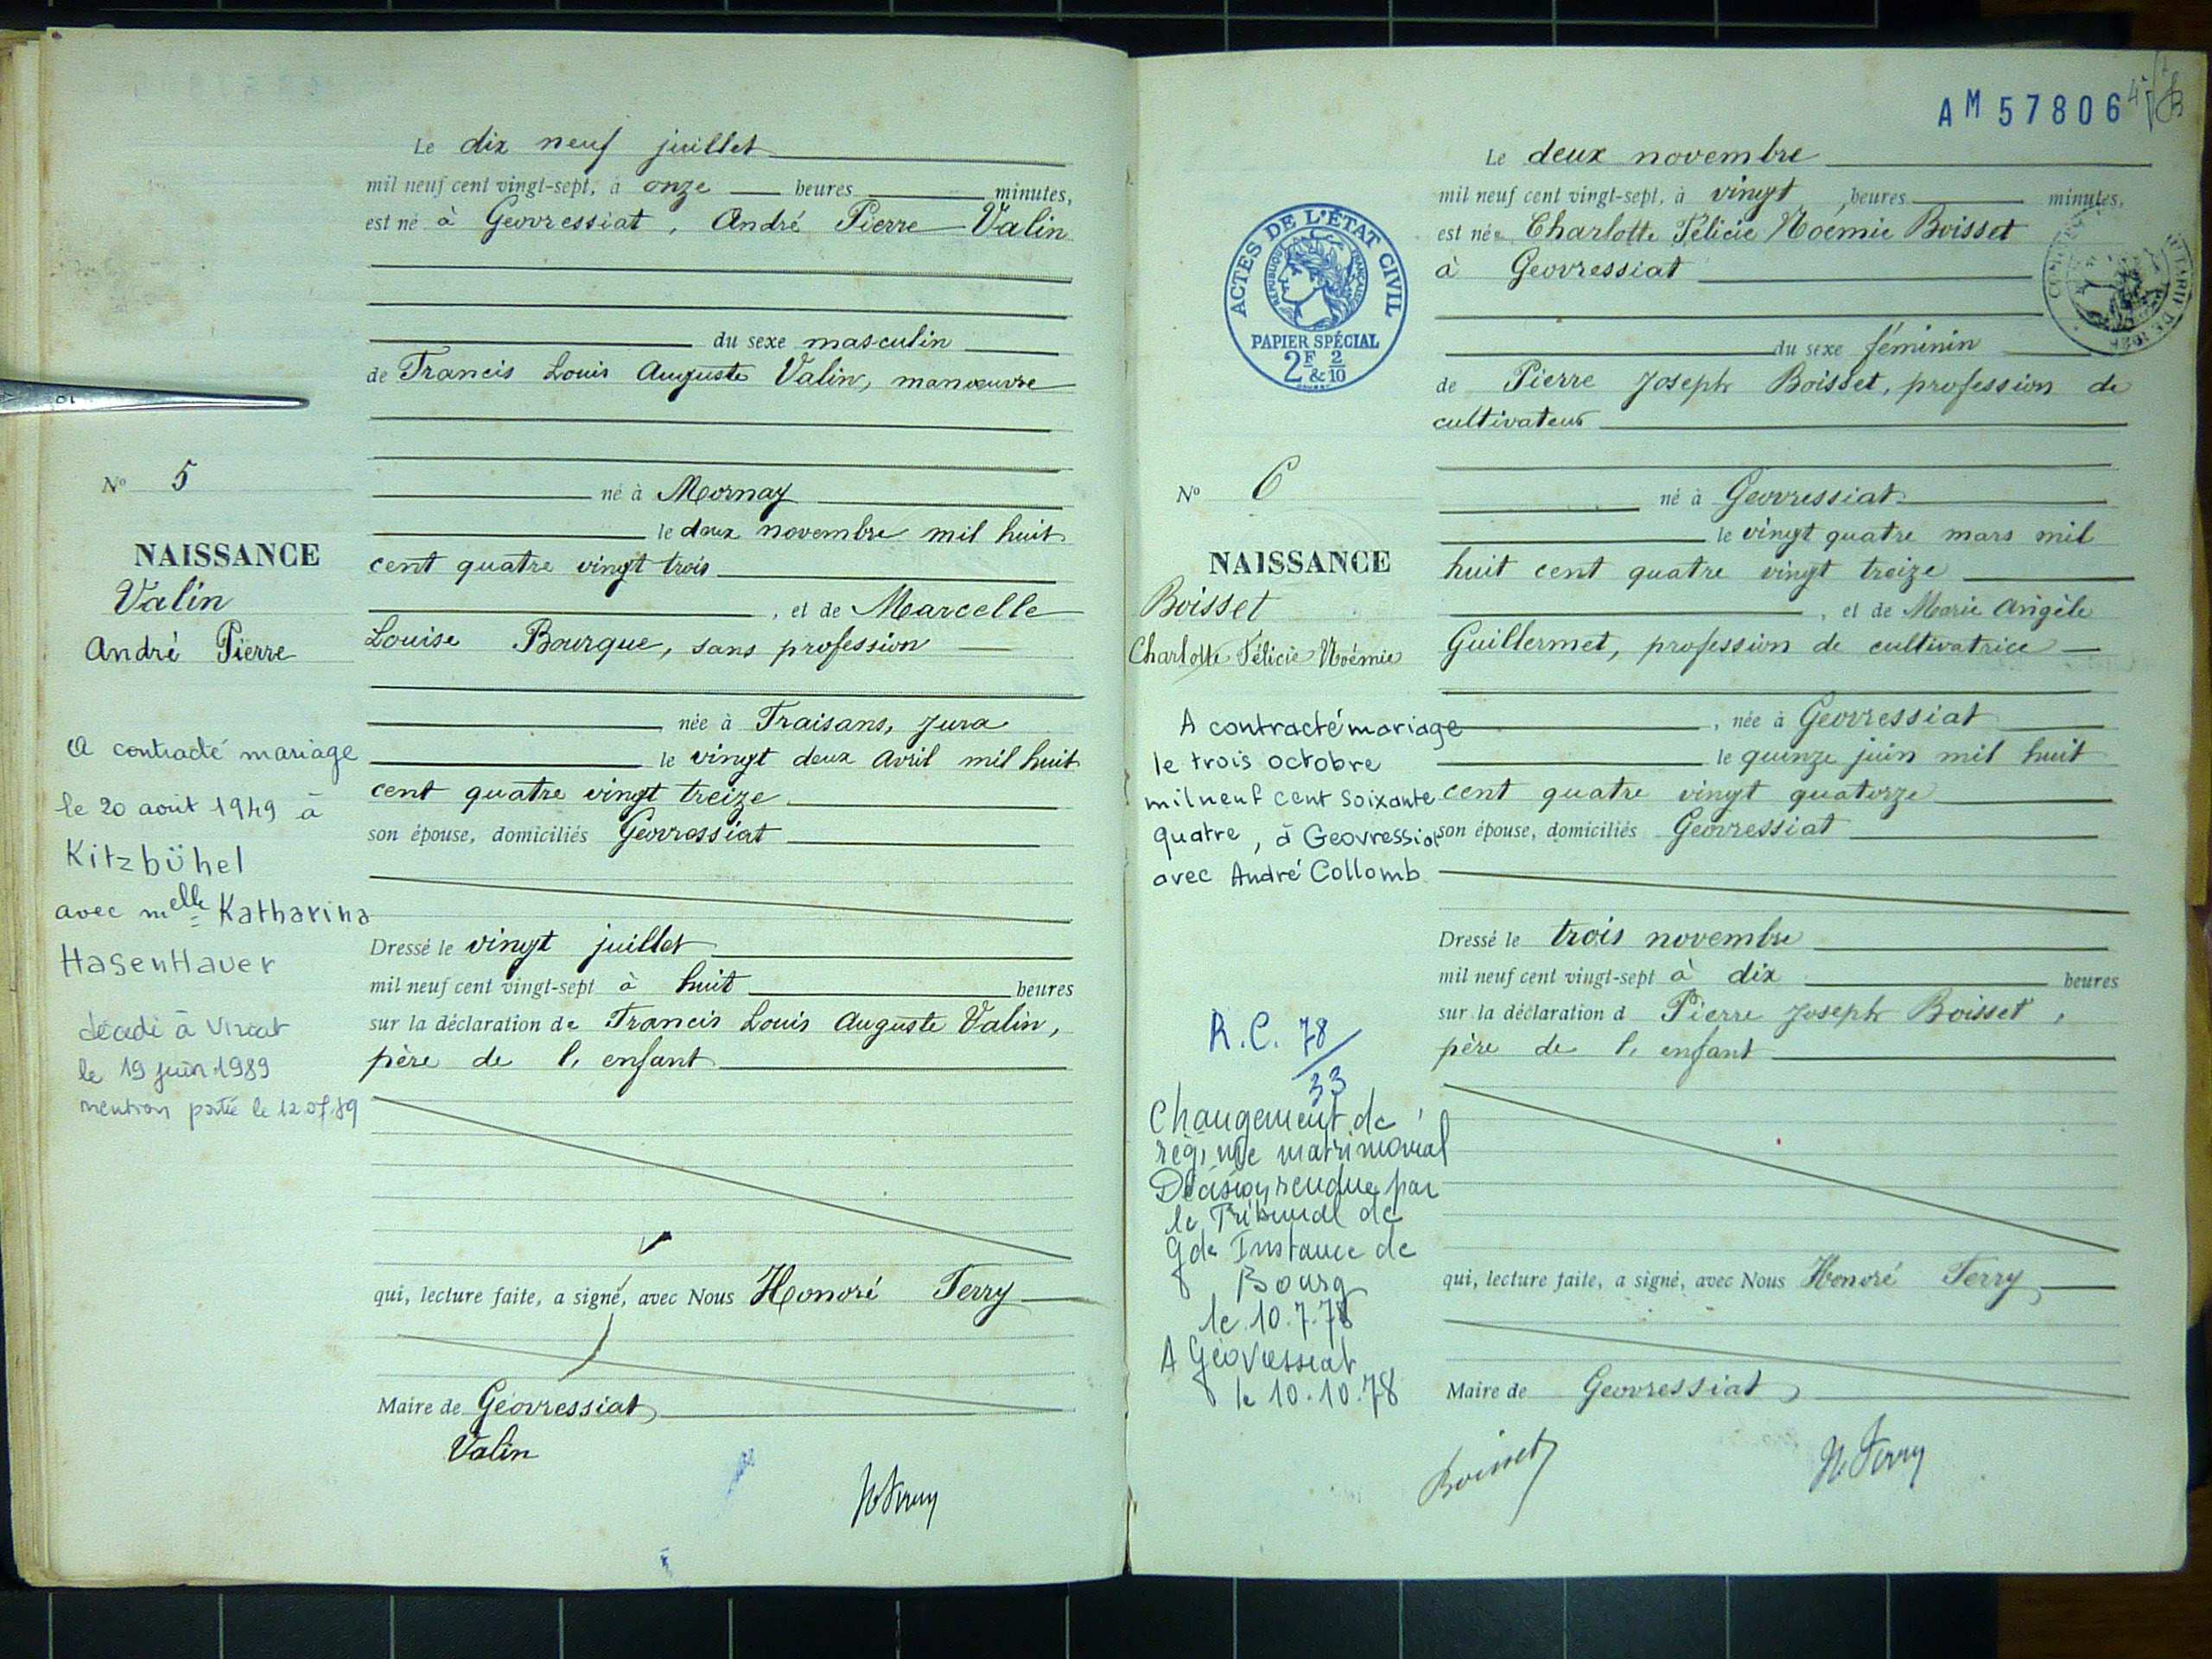 Le dix neuf juillet
mil neuf cent vingt-sept, à onze heures minutes,
est né à Geovressiat, André Pierre Valin
du sexe masculin
de Francis Louis Auguste Valin, manœuvre
né à Mornay
le deux novembre mil huit
cent quatre vingt trois
, et de Marcelle
Louise Bourgue, sans profession
née à Fraisans, Jura
le vingt deux avril mil huit
cent quatre vingt treize
son épouse, domiciliés Geovressiat
Dressé le vingt juillet
mil neuf cent vingt-sept à huit heures
sur la déclaration de Francis Louis Auguste Valin,
père de l'enfant
qui, lecture faite, a signé, avec Nous Honoré Ferry
Maire de Géovressiat
Valin
H. Ferry
No 5
NAISSANCE
Valin
André Pierre
A contracté mariage
le 20 août 1949 à
Kitzbühel
avec Melle Katharina
HasenHauer
décédé à Viriat
le 19 juin 1989
mention portée le 12.07.89
AM 57806
Le deux novembre
mil neuf cent vingt-sept, à vingt heures minutes,
est née Charlotte Félicie Noémie Boisset
à Geovressiat
du sexe féminin
de Pierre Joseph Boisset, profession de
cultivateur
né à Geovressiat
le vingt quatre mars mil
huit cent quatre vingt treize
, et de Marie Angèle
Guillermet, profession de cultivatrice
, née à Geovressiat
le quinze juin mil huit
cent quatre vingt quatorze
son épouse, domiciliés Geovressiat
Dressé le trois novembre
mil neuf cent vingt-sept à dix heures
sur la déclaration d Pierre Joseph Boisset,
père de l'enfant
qui, lecture faite, a signé, avec Nous Honoré Ferry,
Maire de Geovressiat
Boisset
H. Ferry
ACTES DE L'ÉTAT CIVIL
RÉPUBLIQUE FRANÇAISE
PAPIER SPÉCIAL
2F & 2/10
No 6
NAISSANCE
Boisset
Charlotte Félicie Noémie
A contracté mariage
le trois octobre
mil neuf cent soixante
quatre, à Geovressiat
avec André Collomb
R.C. 78/33
Changement de
régime matrimonial
Décision rendue par
le Tribunal de
Gde Instance de
Bourg
le 10.7.78
A Géovressiat
le 10.10.78